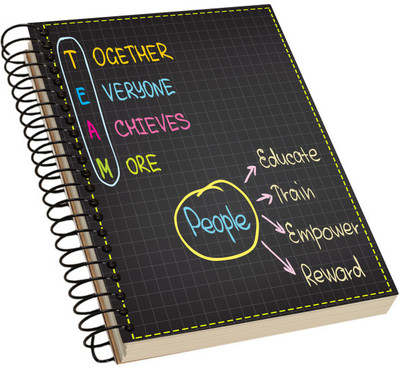 TOGETHER
EVERYONE
ACHIEVES
MORE
People
Educate
Train
Empower
Reward